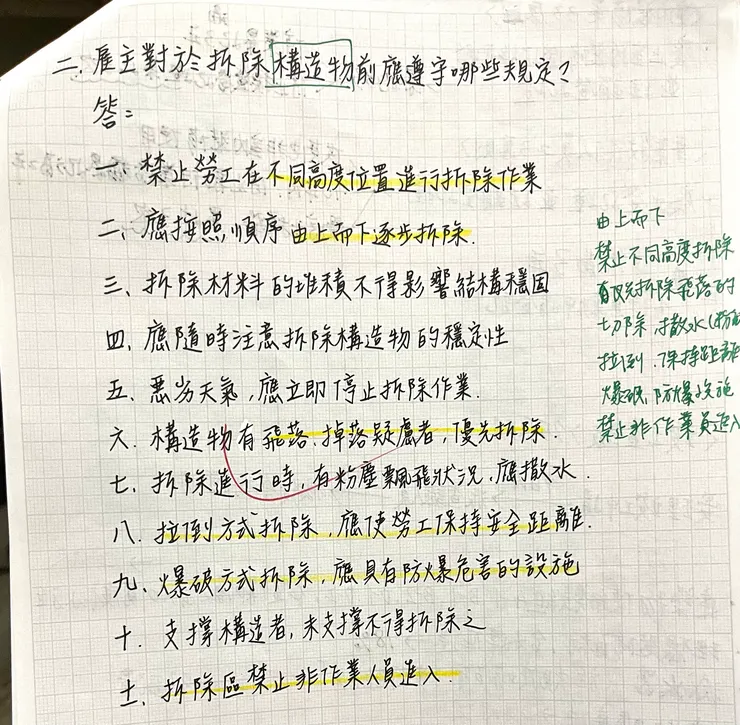 二、雇主對於拆除構造物前應遵守哪些規定？
答：
一、禁止勞工在不同高度位置進行拆除作業
二、應按照順序由上而下逐步拆除.
三、拆除材料的堆積不得影響結構穩固
四、應隨時注意拆除構造物的穩定性
五、惡劣天氣,應立即停止拆除作業.
六、構造物有飛落、掉落疑慮者,優先拆除.
七、拆除進行時,有粉塵飄飛狀況,應撒水.
八、拉倒方式拆除,應使勞工保持安全距離.
九、爆破方式拆除,應具有防爆危害的設施
十、支撐構造者,未支撐不得拆除之
十一、拆除區禁止非作業人員進入.
由上而下
禁止不同高度拆除
優先拆除飛落的
切除,撒水
拉倒,保持距離
爆破,防爆設施
禁止非作業員進入